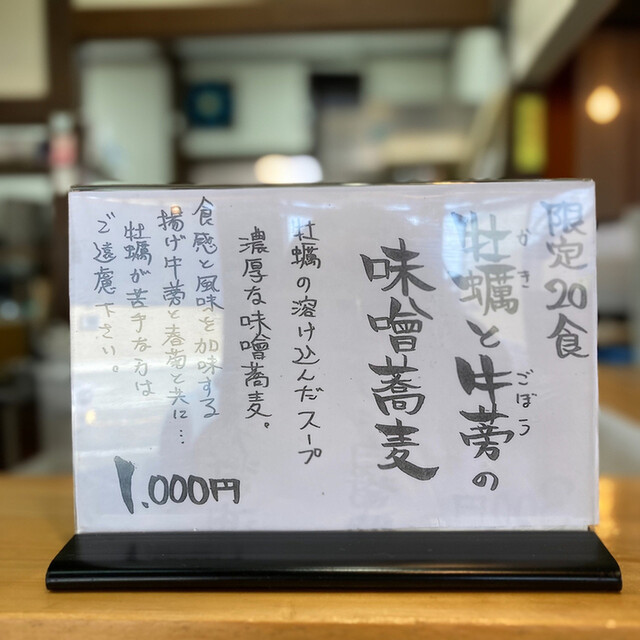 限定20食
牡蠣と牛蒡の
かき
ごぼう
味噌蕎麦
牡蠣の溶け込んだスープ
濃厚な味噌蕎麦。
食感と風味を加味する
揚げ牛蒡と春菊と共に…
牡蠣が苦手な方は
ご遠慮下さい。
1.000円